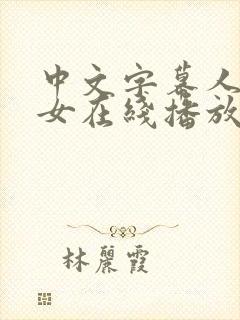 中文字幕人
女在綫播放
林麗霞